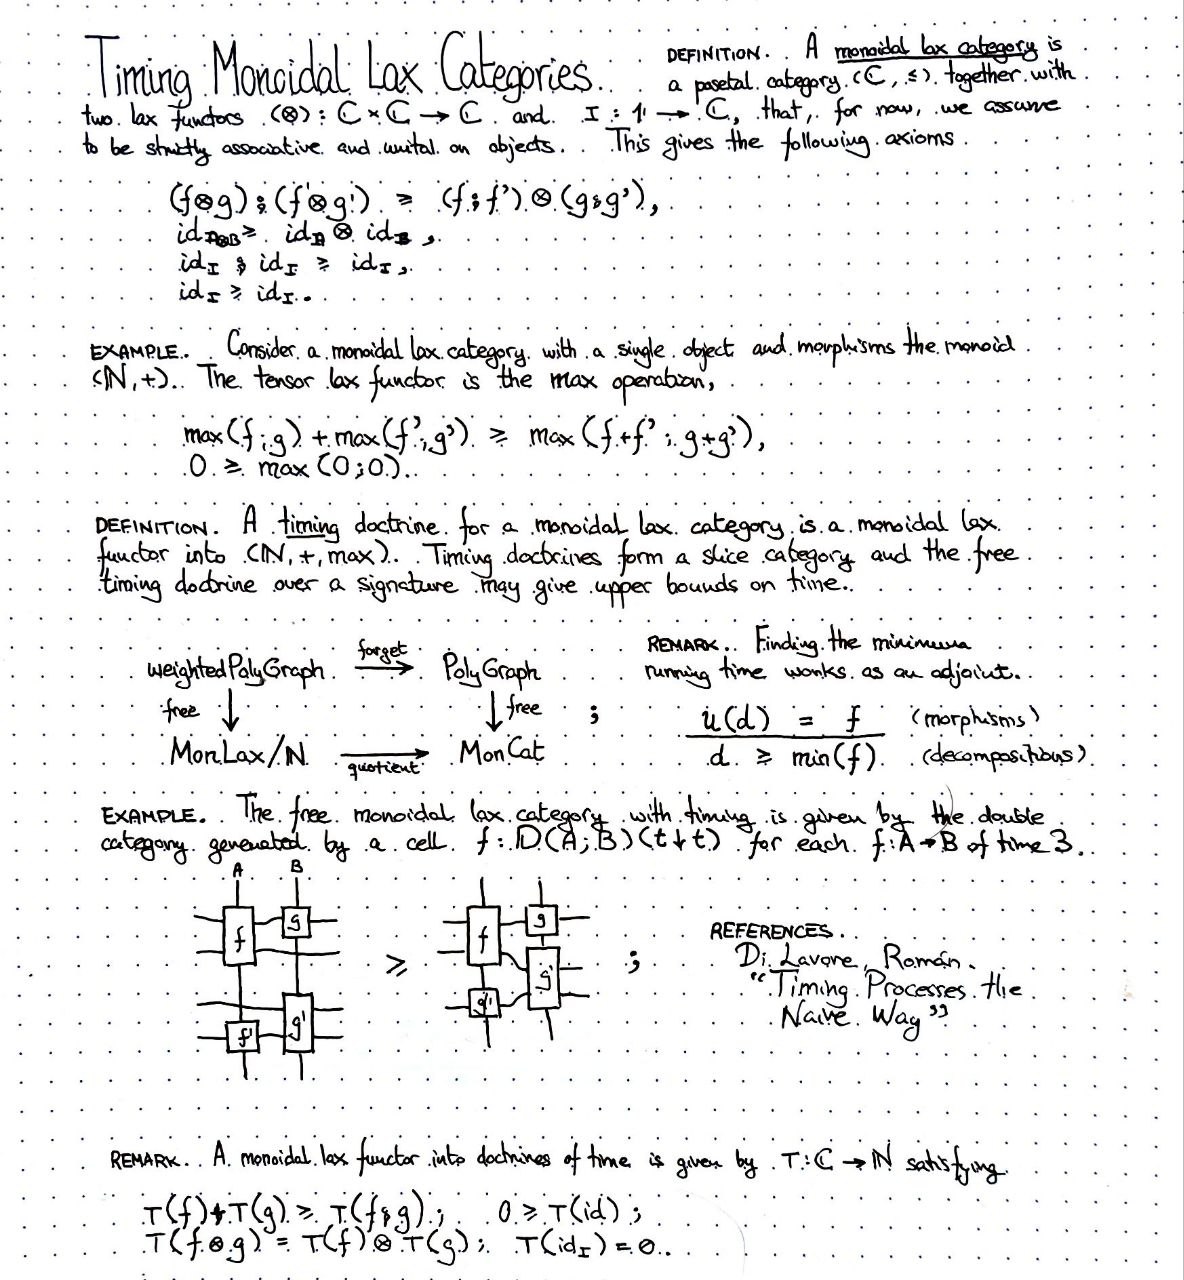 Timing Monoidal Lax Categories.
DEFINITION. A monoidal lax category is
a posetal category (ℂ, ≤) together with
two lax functors (⊗) : ℂ × ℂ → ℂ and I : 1 → ℂ, that, for now, we assume
to be strictly associative and unital on objects. This gives the following axioms.
(f⊗g) ⨟ (f'⊗g') ≥ (f⨟f') ⊗ (g⨟g'),
id_A⊗B ≥ id_A ⊗ id_B,
id_I ⨟ id_I ≥ id_I,
id_I ≥ id_I.
EXAMPLE. Consider a monoidal lax category with a single object and morphisms the monoid
(ℕ, +). The tensor lax functor is the max operation,
max(f;g) + max(f';g') ≥ max(f+f';g+g'),
0 ≥ max(0;0).
DEFINITION. A timing doctrine for a monoidal lax category is a monoidal lax
functor into (ℕ, +, max). Timing doctrines form a slice category and the free
timing doctrine over a signature may give upper bounds on time.
weightedPolyGraph forget → PolyGraph
free ↓ ↓ free ;
MonLax/ℕ → quotient MonCat
REMARK. Finding the minimum
running time works as an adjoint.
u(d) = f (morphisms)
d ≥ min(f). (decompositions)
EXAMPLE. The free monoidal lax category with timing is given by the double
category generated by a cell f : 𝔻(A;B)(t↓t) for each f:A→B of time 3.
A B
f g
f' g'
≥
f g
g' g'
;
REFERENCES.
Di Lavore, Román.
"Timing Processes the
Naïve Way"
REMARK. A monoidal lax functor into doctrines of time is given by T:ℂ→ℕ satisfying
T(f)+T(g) ≥ T(f⨟g); 0 ≥ T(id);
T(f⊗g) = T(f) ⊗ T(g); T(id_I) = 0.